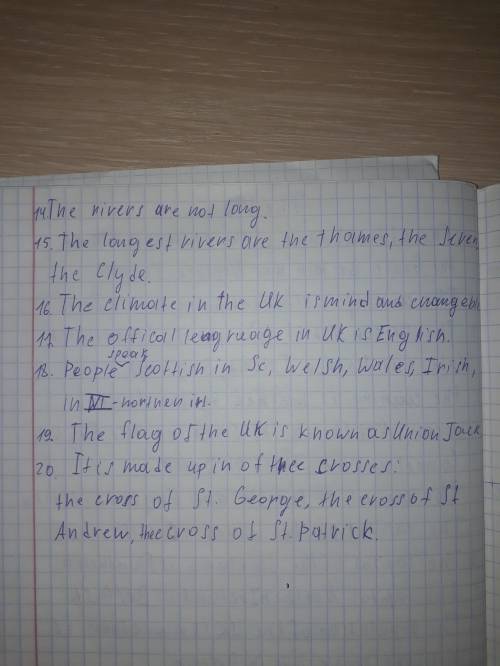 14. The rivers are not long.
15. The longest rivers are the Thames, the Seve
the Clyde.
16. The climate in the UK is mind and changeb
17. The offical leagruage in UK is English.
speak
18. People Scottish in Sc, Welsh, Wales, Irish,
in NI - northen irl.
19. The flag of the UK is known as Union Jack
20. It is made up in of thee crosses:
the cross of St. George, the cross of St
Andrew, the cross of St. Patrick.